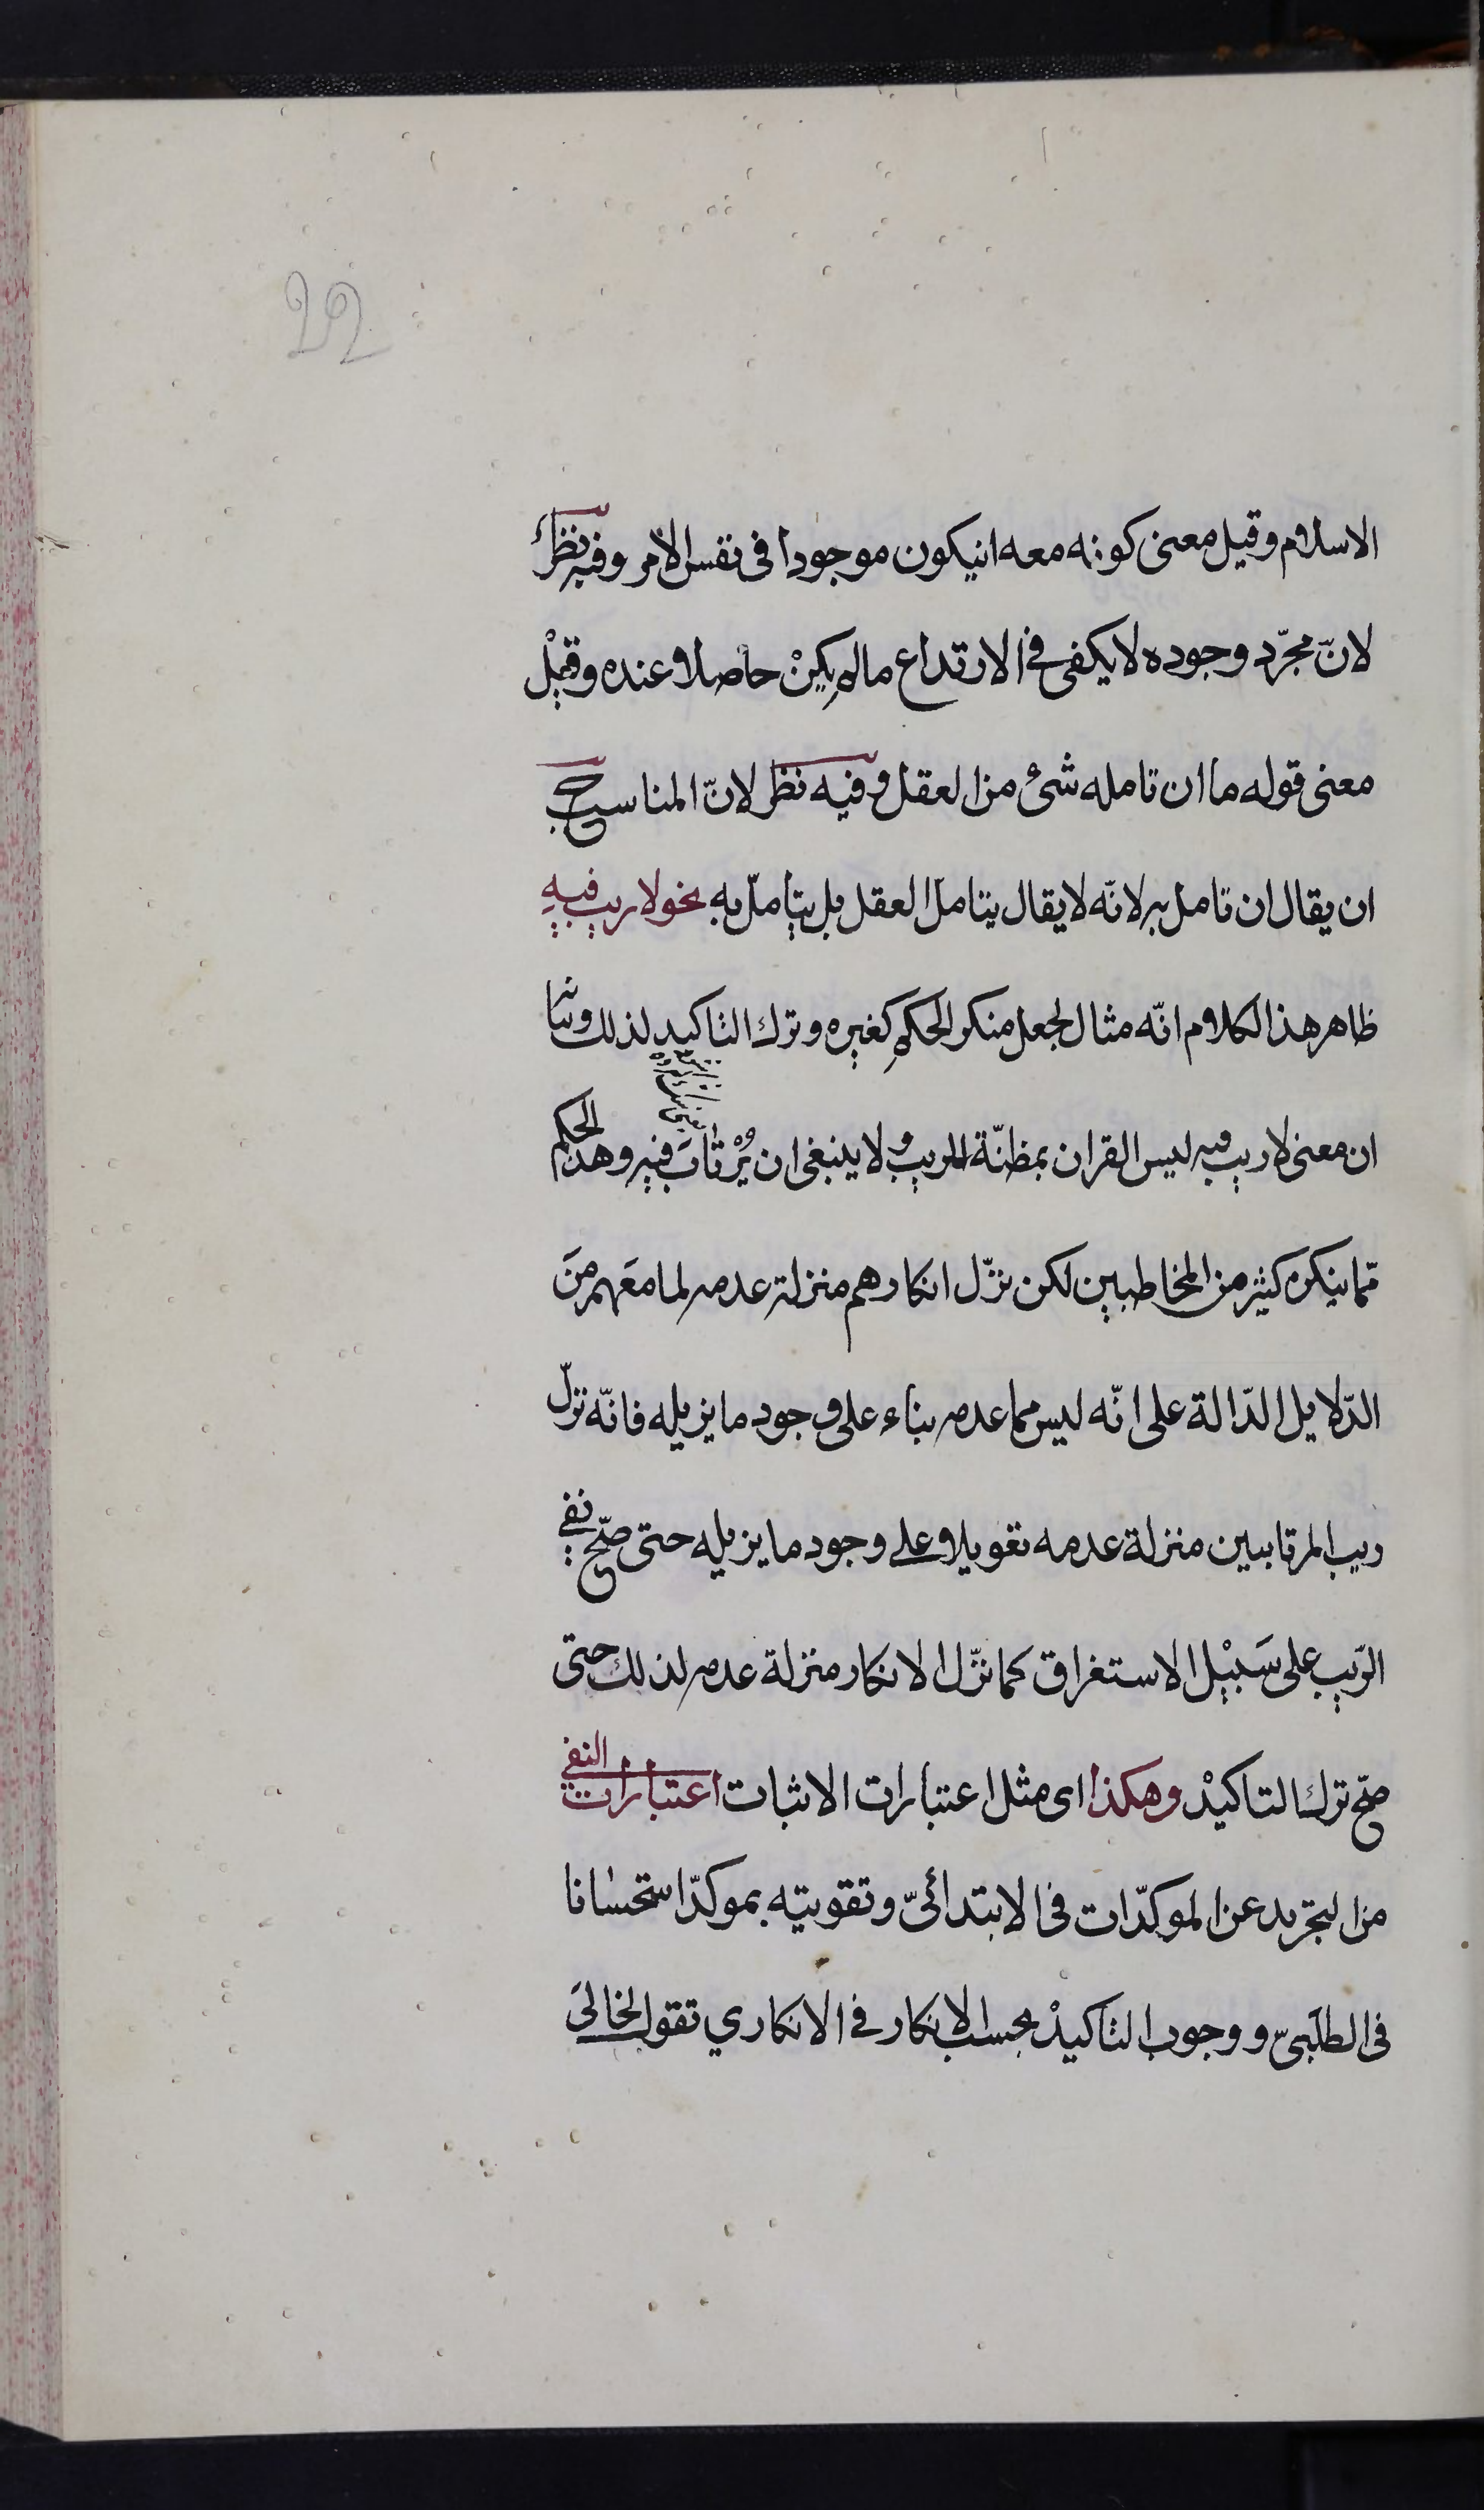 22
الاسلام وقيل معنى كونه معه انيكون موجودا فى نفس الامر وفيه نظر
لانّ مجرّد وجوده لا يكفى في الارتداع مالم يكن حاصلا عنده وقيل
معنى قوله ما ان تامله شئ من العقل وفيه نظر لانّ المناسب ح
ان يقال ان تامل به لانّه لا يقال يتامل العقل بل يتامل به نحو لا ريب فيه
ظاهر هذا الكلام انّه مثال لجعل منكر الحكم كغيره وترك التاكيد لذلك وبيانه
ان معنى لا ريب فيه ليس القران بمظنّة للريب ولا ينبغى ان يُرْتاب فيه وهذا الحكم
ممّا ينكره كثير من المخاطبين لكن نزّل انكارهم منزلة عدمه لما معهم مِنَ
الدّلايل الدّالة على انّه ليس مما عدمه بناء على وجود ما يزيله فانّه نزّل
ريب المرتابين منزلة عدمه تعويلا على وجود ما يزيله حتى صحّ نفي
الرّيب على سَبيْل الاستغراق كما نزّل الانكار منزلة عدمه لذلك حتى
صحّ ترك التاكيْد وهكذا اى مثل اعتبارات الاثبات اعتبارات النفي
من التجريد عن الموكدّات فى الابتدائىّ وتقويته بموكدّ استحسانا
فى الطلَبىّ ووجوب التاكيدْ بحسب الانكار في الانكاري تقول لخالىَ